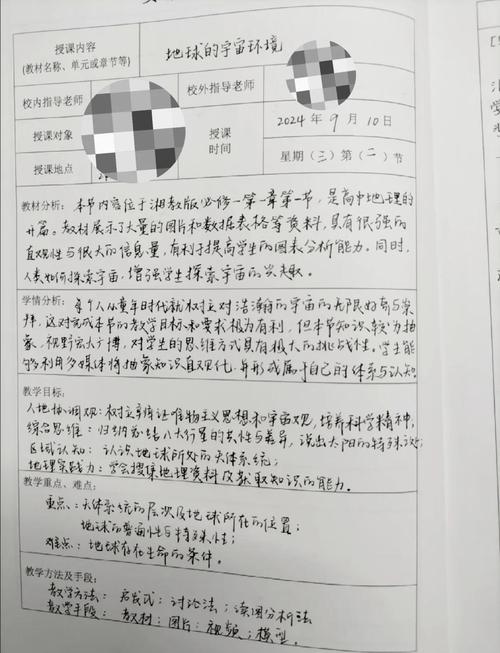 授课内容
(教材名称、单元或章节等)
地球的宇宙环境
校内指导老师
校外指导老师
授课对象
授课
时间
2024年9月10日
授课地点
星期(三)第(二)节
教材分析：本节内容位于湘教版必修一第一章第一节，是高中地理的
开篇。教材展示了大量的图片和数据表格等资料，具有很强的
直观性与很大的信息量，有利于提高学生的图表分析能力。同时，
人类如何探索宇宙，增强学生探索宇宙的兴趣。
学情分析：每个人从童年时代就树立对浩瀚的宇宙的无限好奇与崇
拜，这对完成本节的教学目标和要求极为有利，但本节知识较为抽
象，视野宏大广博，对学生的思维方式具有极大的挑战性。学生能
够利用多媒体将抽象知识直观化，并形成属于自己的体系与认知
教学目标：
人地协调观：树立辩证唯物主义思想和宇宙观，培养科学精神，
综合思维：归纳总结八大行星的共性与差异，说出太阳的特殊；
区域认知：认识地球所处的天体系统；
地理实践力：学会搜集地理资料及获取知识的能力。
教学重点、难点：
重点：天体系统的层次及地球所在的位置；
地球的普遍性与特殊性；
难点：地球存在生命的条件。
教学方法及手段：
教学方法：启发式；讨论法；读图分析法
教学手段：教材；图片；视频；模型。